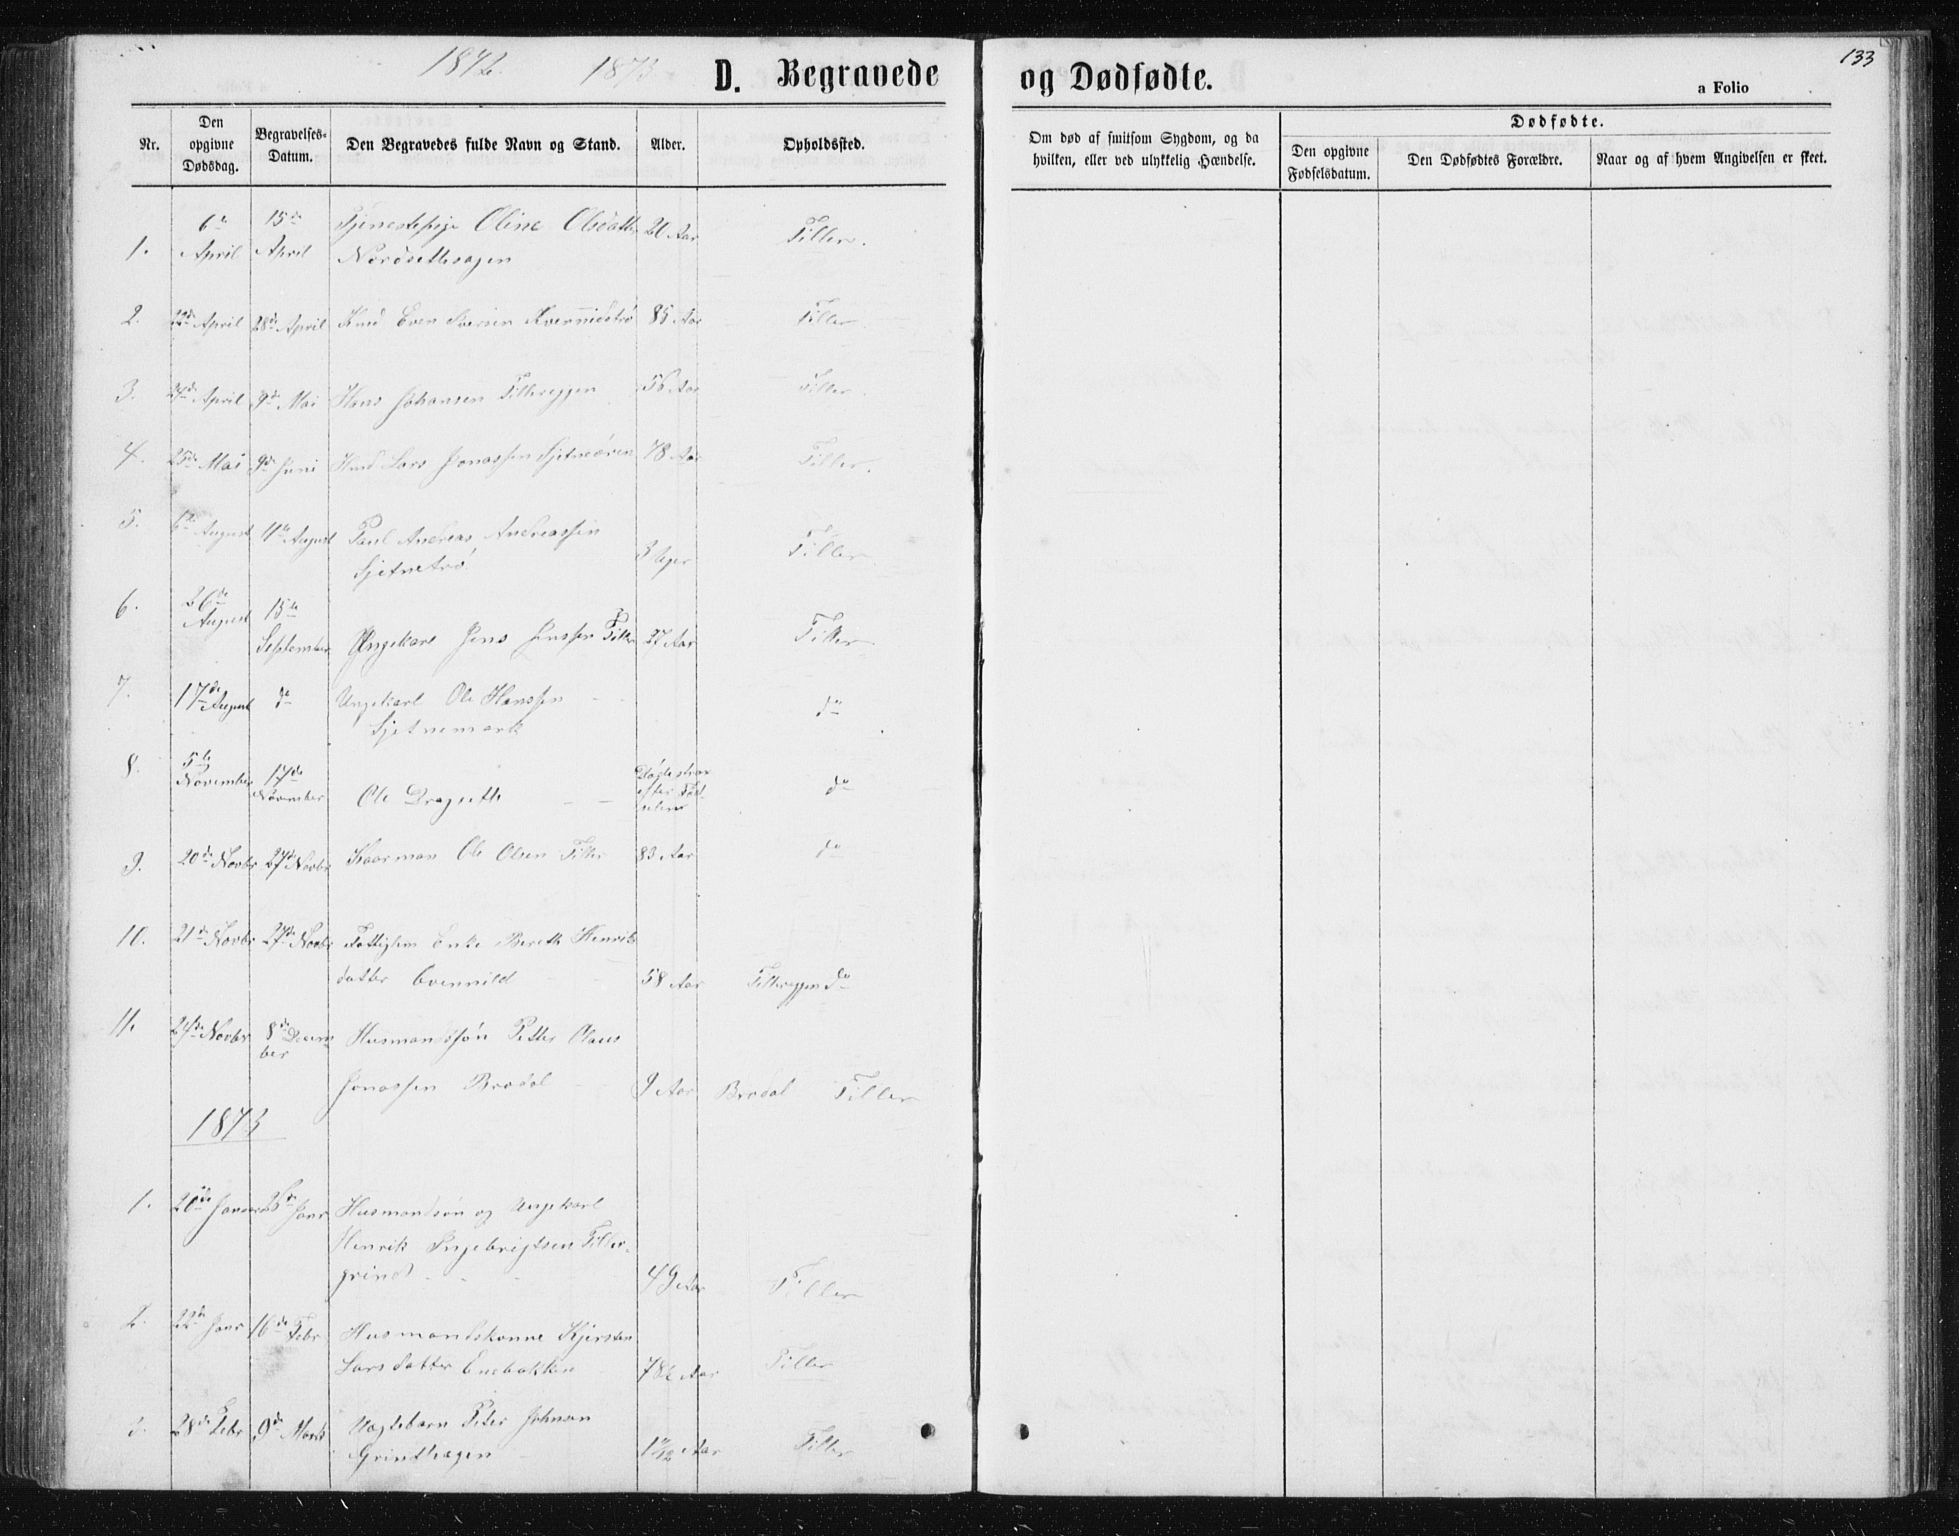 1872. 1873.
133
D. Begravede og Dødfødte.
a Folio
Nr.
Den opgivne Dødsdag.
Begravelses-Datum.
Den Begravedes fulde Navn og Stand.
Alder.
Opholdssted.
Om død af smitsom Sygdom, og da hvilken, eller ved ulykkelig Hændelse.
Dødfødte.
Den opgivne Fødselsdatum.
Den Dødfødtes Forældre.
Naar og af hvem Angivelsen er skeet.
1. 6te April 15de April Tjenestepige Oline Olsdatter 20 Aar Tiller.
Nordsetthagen
2. 22de April 28de April Even Iversen 85 Aar Tiller
3. April 9de Mai Hans Johansen Tillereggen 56 Aar Tiller.
4. 25de Mai 9de Juni Lars Jonassen Sjetneøren 78 Aar Tiller.
5. 6te August 11te August Paul Andreas Andreassen
Sjetnetrø 3 Uger Tiller
6. 26de August 15de September Ungekarl Jens Jenssen Tiller 27 Aar Tiller
7. 17de August do Ungekarl Ole Hanssen - -
Sjetnemark do
8. 5te November 17de November Ole Dragsett - - Døde strax efter Fødselen do
9. 20de Novbr 27de Novbr Kaarman Ole Olsen Tiller 83 Aar do
10. 21de Novbr 27de Novbr Fattiglem Enke Bereth Henriks
datter - - 58 Aar Tillereggen do
11. Novbr 8de December Husmandssøn Petter Olaus
Jonassen Brødal - 9 Aar Brødal Tiller
1873
1. 20de Januar 26de Janr Husmandssøn og Ungekarl
Henrik Ingebrigtsen Tiller-
grind - - - 49 Aar Tiller
2. 22de Janr 16de Febr Husmandskonne Kjersten
Larsdatter Enebakken Aar Tiller
3. 28de Febr 9de Marts Ægtebarn Peter Johnsen
Grindhagen Aar Tiller